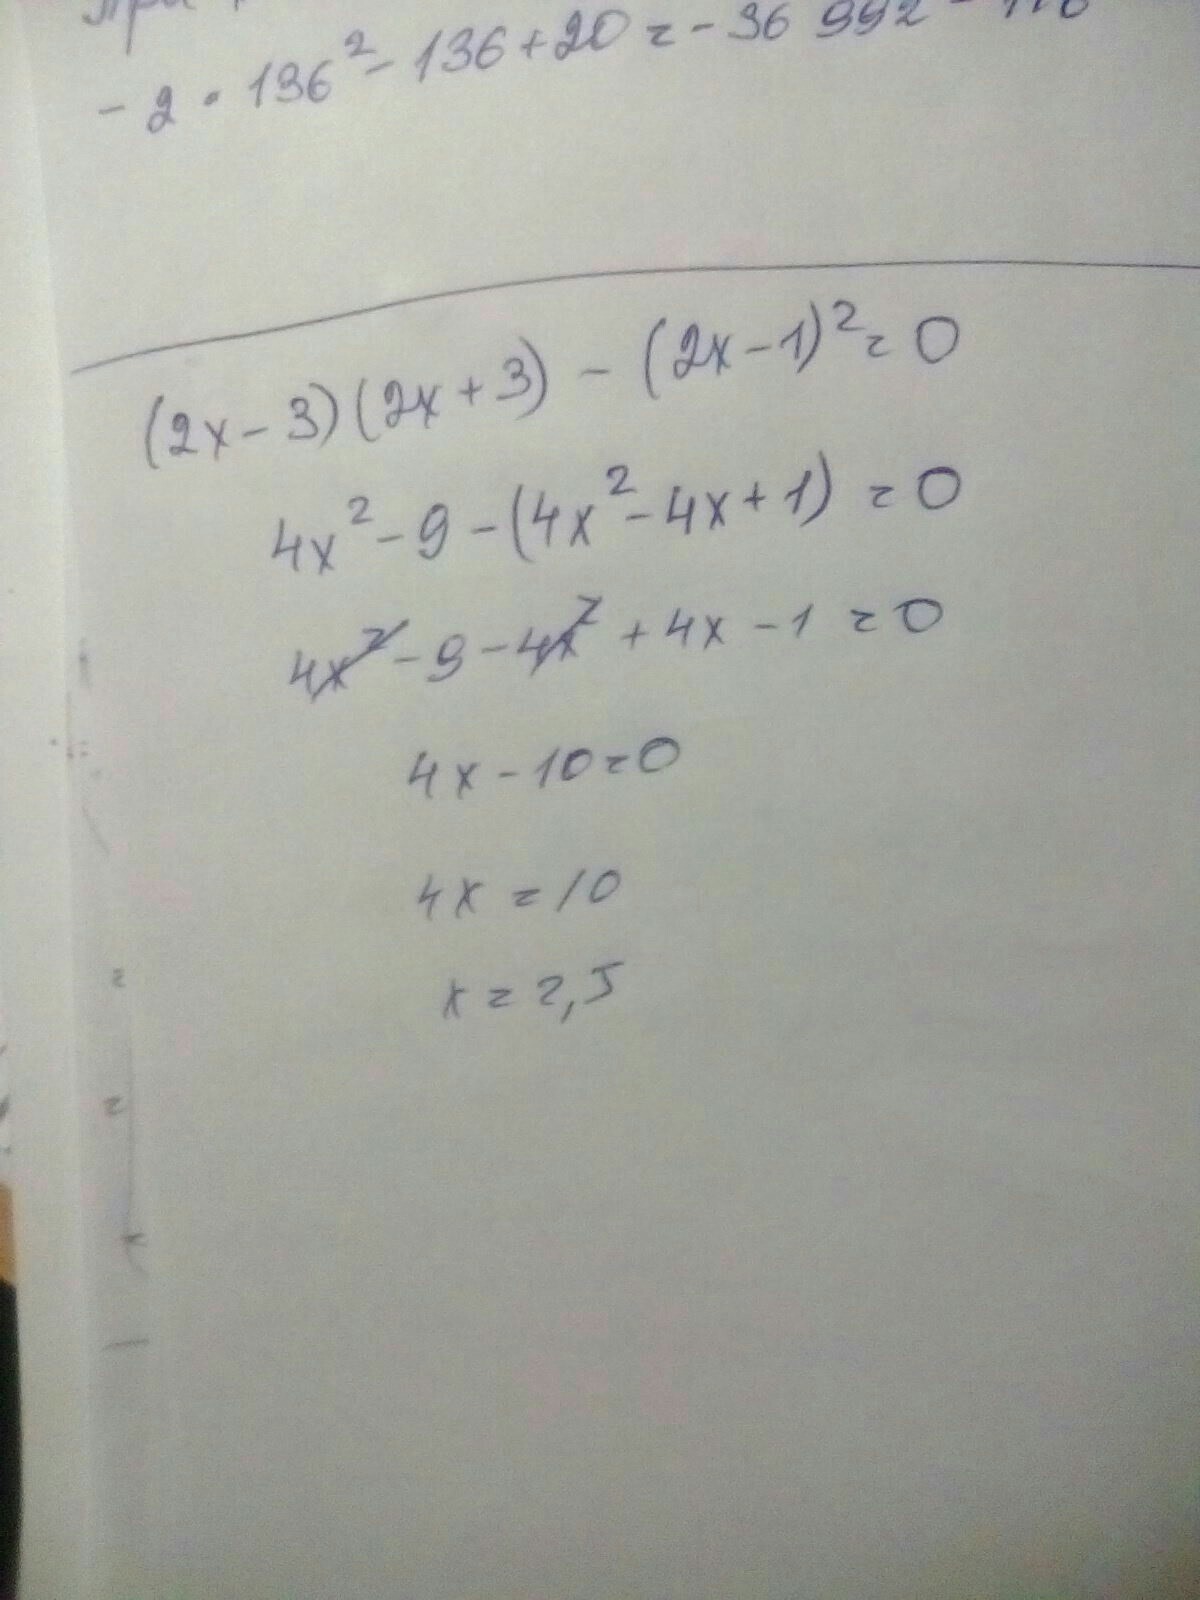 При
- 2 · 136² - 136 + 20 = - 36 992 - 116
(2x - 3)(2x + 3) - (2x - 1)² = 0
4x² - 9 - (4x² - 4x + 1) = 0
4x² - 9 - 4x² + 4x - 1 = 0
4x - 10 = 0
4x = 10
x = 2,5